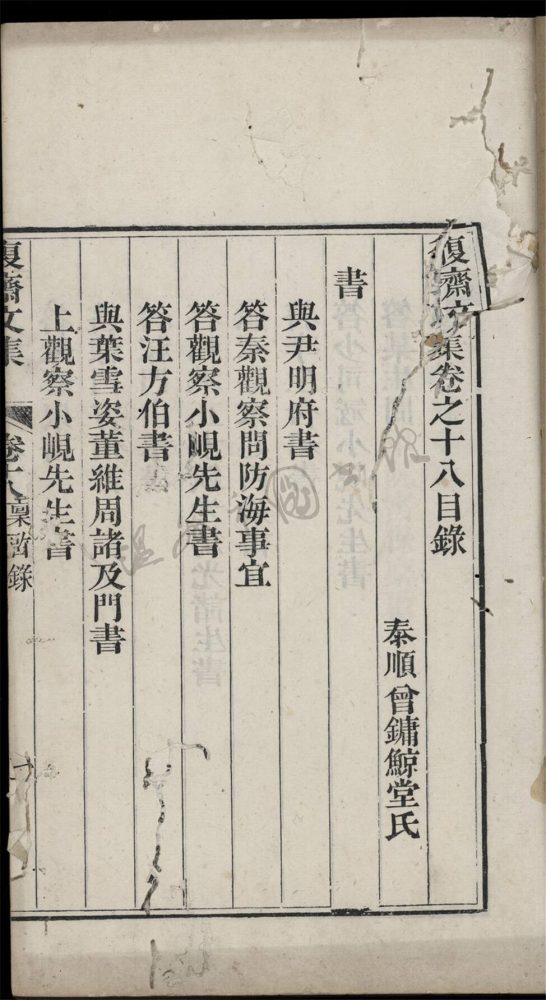 復齋文集卷之十八目錄
泰順曾鏞鯨堂氏
書
與尹明府書
答秦觀察問防海事宜
答觀察小峴先生書
答汪方伯書
與葉雪姿董維周諸及門書
上觀察小峴先生書
復齋文集
卷十八
錄